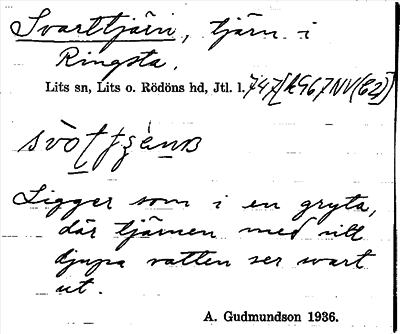 Svarttjärn, tjärn i
Ringsta.
Lits sn, Lits o. Rödöns hd, Jtl. l.
Ligger som i en gryta,
där tjärnen med sitt
djupa vatten ser svart
ut.
A. Gudmundson 1936.